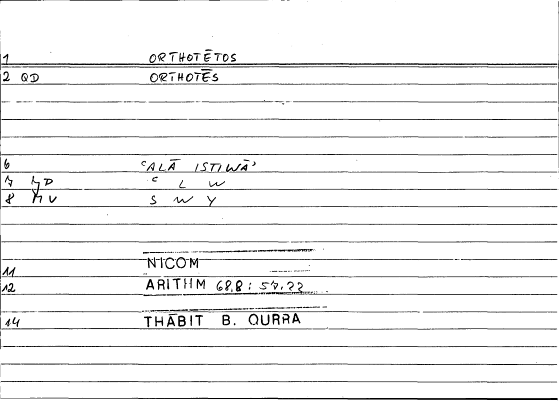 1 ORTHOTĒTOS
2 QD ORTHOTĒS
6 ʿALĀ ISTIWĀʾ
7 ʿ L W
8 S W Y
11 NICOM
12 ARITHM 68,8 : 57,22
14 THĀBIT B. QURRA